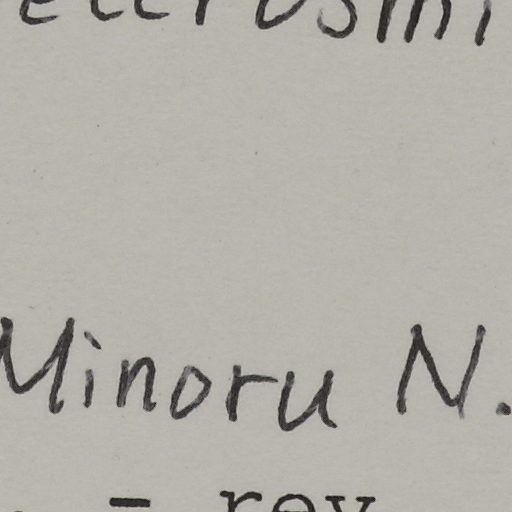 Minoru N.
- rev